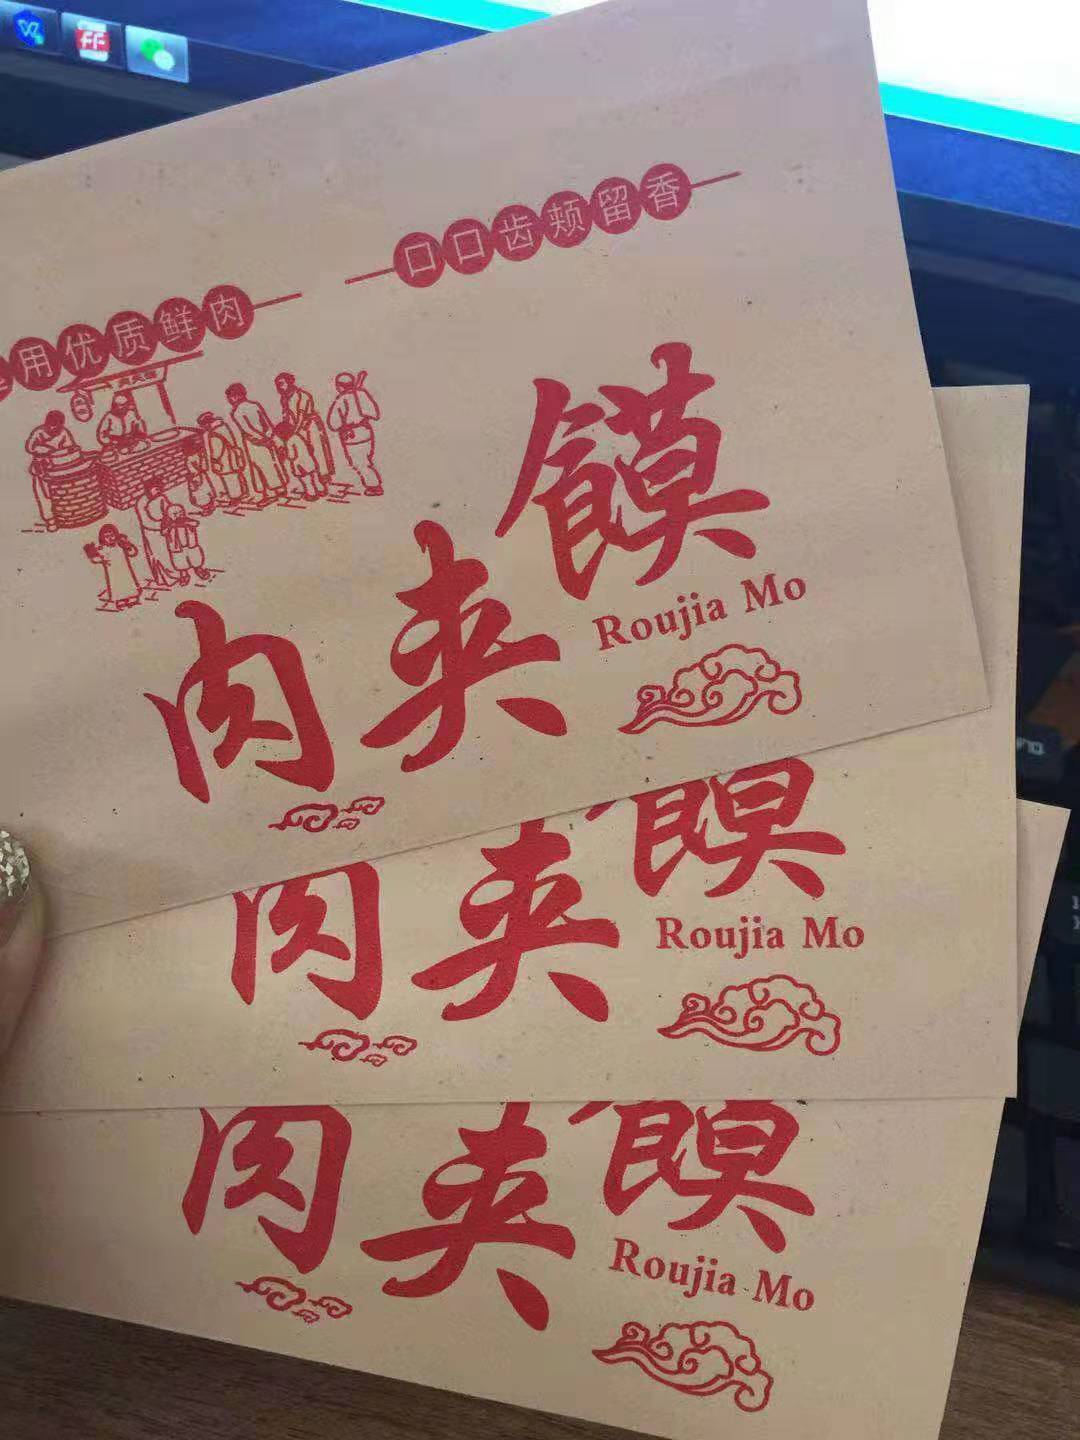 用优质鲜肉
口口齿颊留香
肉夹馍
Roujia Mo
肉夹馍
Roujia Mo
肉夹馍
Roujia Mo